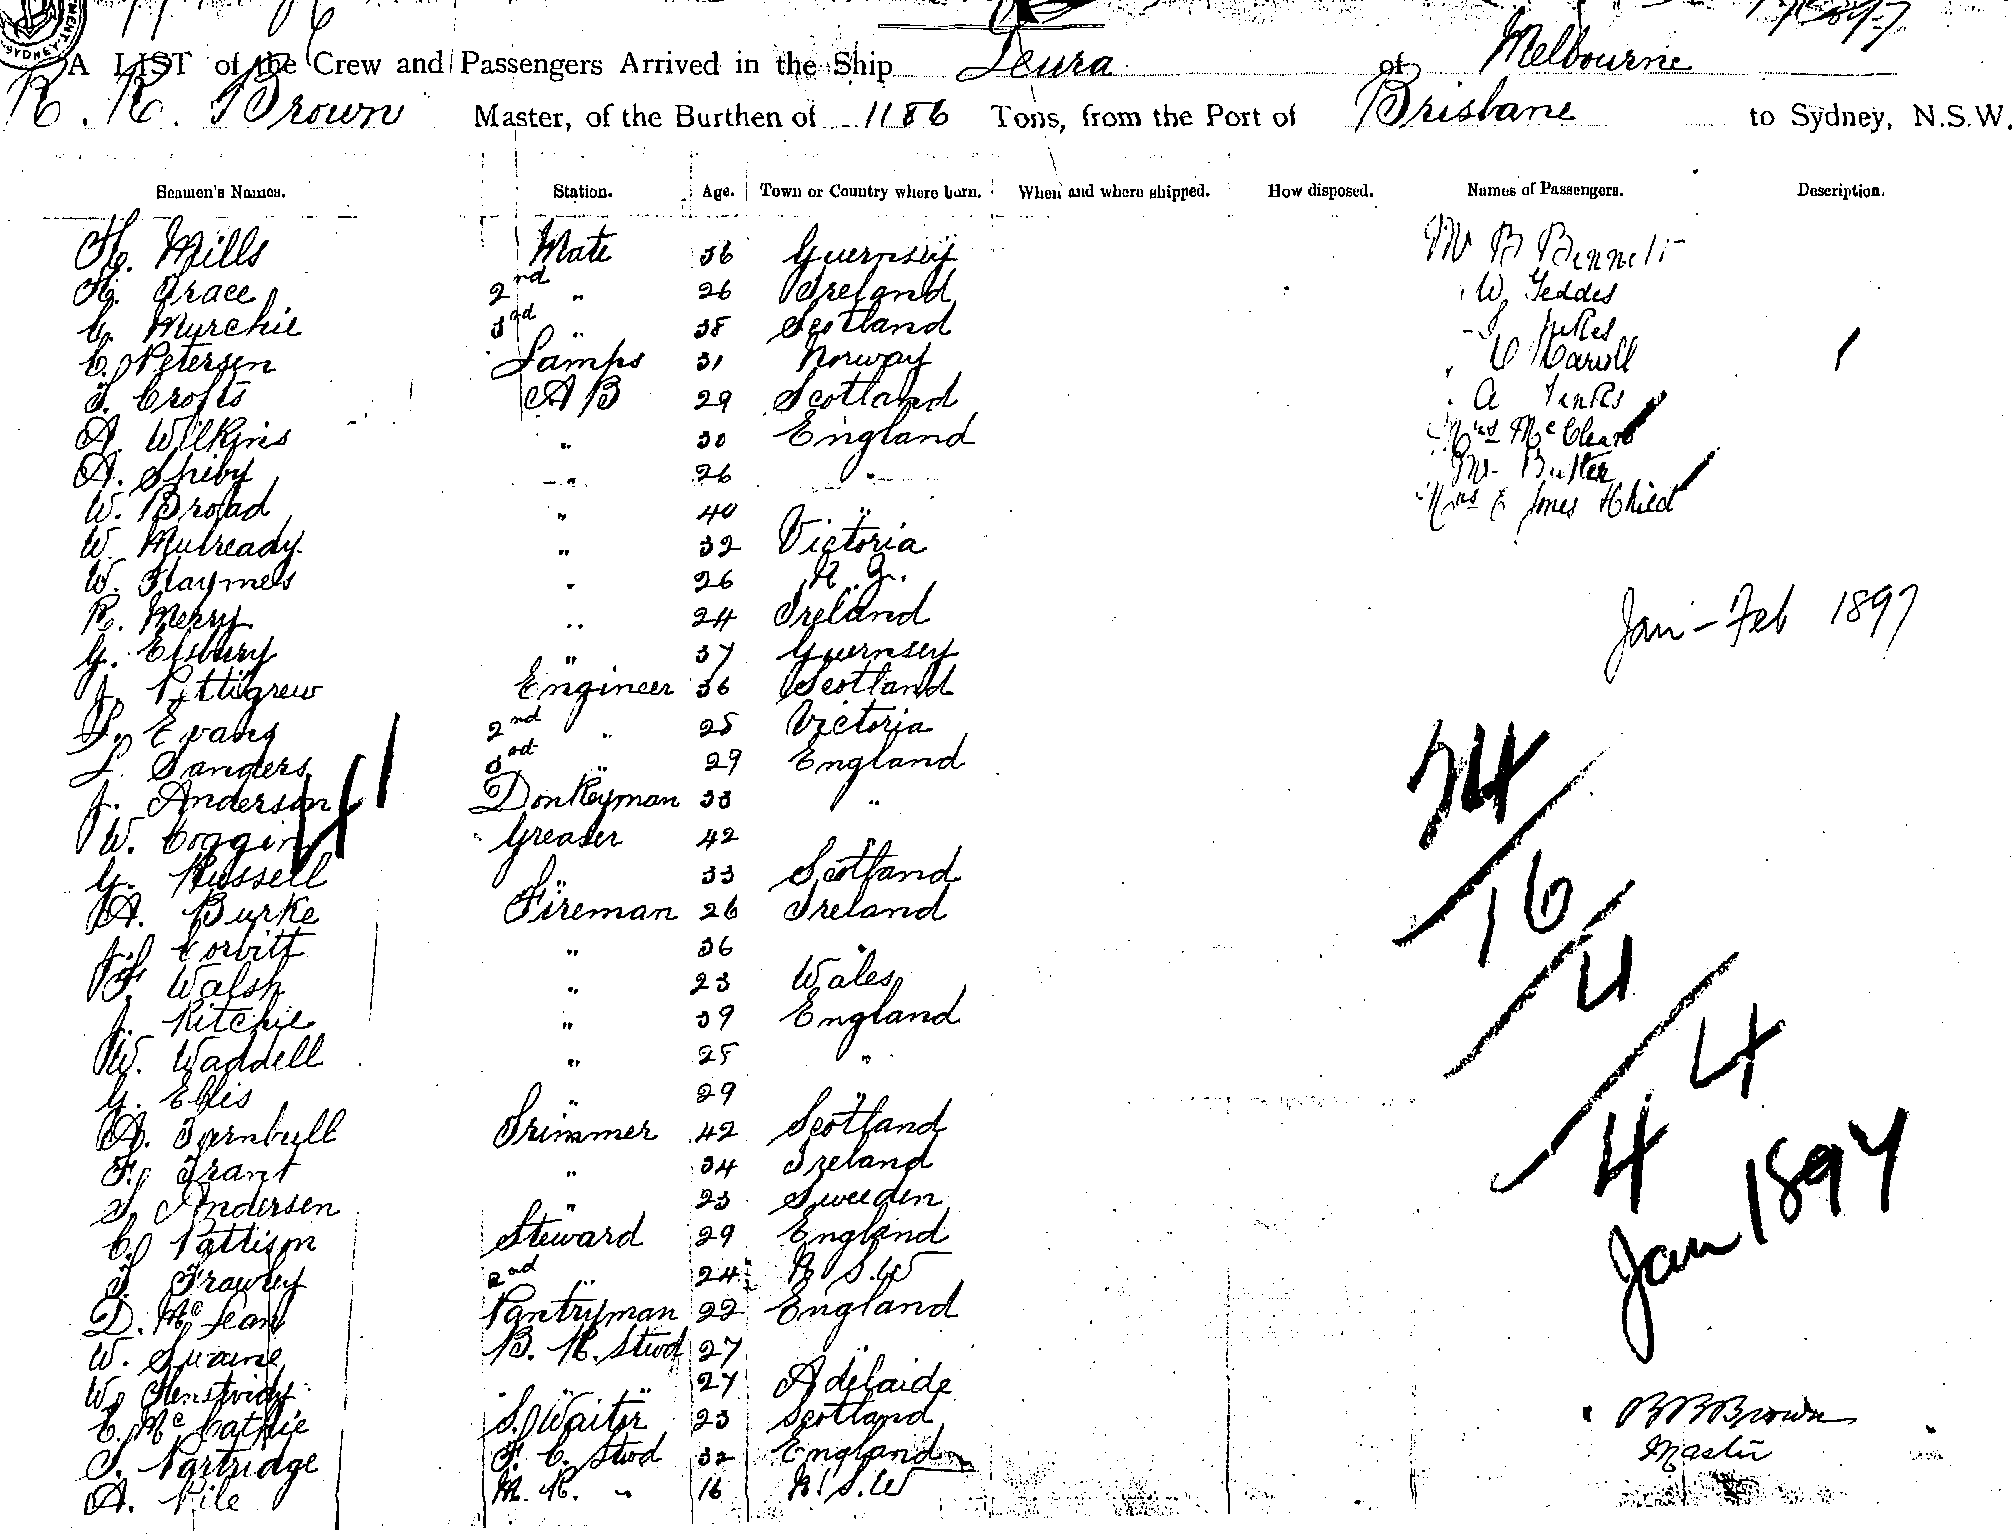 A LIST of the Crew and Passengers Arrived in the Ship Leura of Melbourne
R. R. Brown Master, of the Burthen of 1186 Tons, from the Port of Brisbane to Sydney, N.S.W.
Seamen's Names. Station. Age. Town or Country where born. When and where shipped. How disposed. Names of Passengers. Description.
H. Mills Mate 36 Guernsey Mr B Bennett
H. Grace 2nd " 26 Ireland W Geddes
C. Murchie 3rd " 38 Scotland
C. Petersen Lamps 31 Norway C Carroll
T. Crofts A B 29 Scotland A Jenks
A. Wilkins " 30 England Mrs McCleary
A. Shiby " 26 " Mr Butler
W. Broad " 40 " Mrs E Jones & Child
W. Mulready " 32 Victoria
W. Haymes " 26 N. Z.
R. Merry " 24 Ireland
G. Elsbury " 37 Guernsey
J. Pettigrew Engineer 36 Scotland
Evans 2nd " 25 Victoria
L. Sanders 3rd " 29 England
J. Anderson Donkeyman 33 "
W. Coggin Greaser 42 "
G. Russell " 33 Scotland
A. Burke Fireman 26 Ireland
J. Corbitt " 36 "
F. Walsh " 23 Wales
J. Ritchie " 39 England
W. Waddell " 25 "
G. Ellis " 29 "
A. Turnbull Trimmer 42 Scotland
F. Grant " 34 Ireland
S. Andersen " 23 Sweeden
C. Pattison Steward 29 England
T. Frawley 2nd " 24 N S.W
D. McLean Pantryman 22 England
W. Swaine B. R. Stwd 27 "
W. " " " 27 Adelaide
C. McCathie S. Waiter 23 Scotland
S. Partridge F. C. Stwd 32 England
A. Pile M. R. " 16 N. S.W
Jan - Feb 1897
74
16
4
4
4
Jan 1897
41
R R Brown
Master